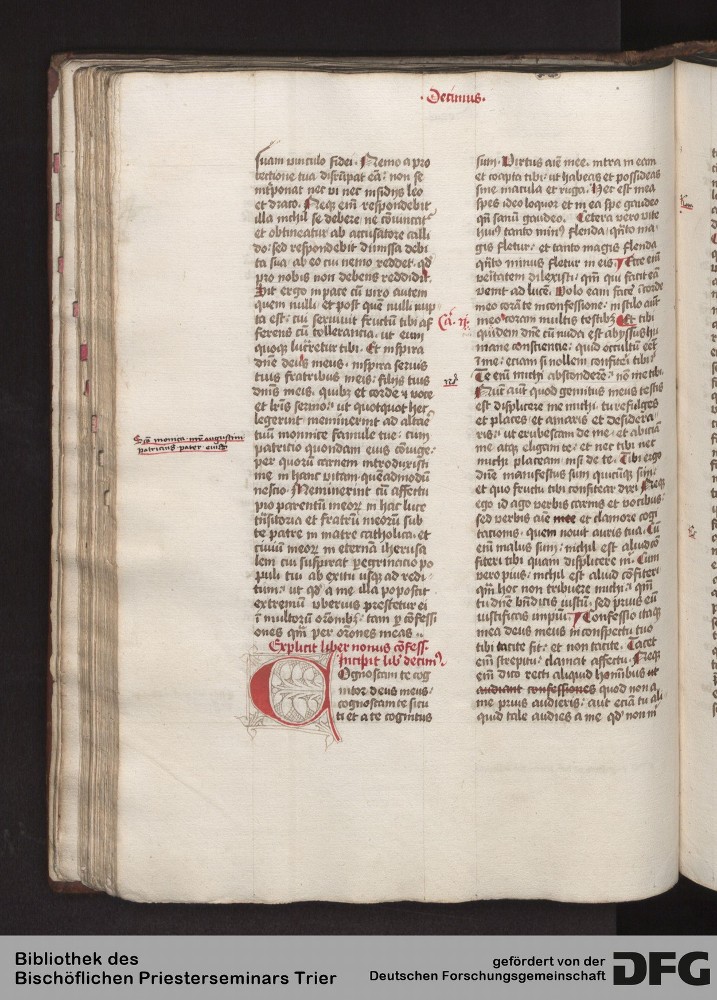 ·Decimus·
suam vinculo fidei. Nemo a pro
tectione tua disrūpat eā: non se
int̄ponat nec vi nec insidijs leo
et draco. Neqȝ em̄ respondebit
illa nichil se debere: ne cōuincat᷑
et obtineatur ab accusatore calli
do: sed respondebit dimissa debi
ta sua ab eo cui nemo reddet. qd̓
pro nobis non debens reddidit.
Sit ergo in pace cū viro autem
quem nulli et post quē nulli nup
ta est: cui seruiuit fructū tibi af
ferens cū tollerancia. ut eum
quoqȝ lucretur tibi. Et inspira
dn̄e deus meus. inspira seruis
tuis fratribus meis: filijs tuis
dn̄is meis. quibȝ et corde ⁊ voce
et lr̄is seruio: ut quotquot hec
legerint meminerint ad altare
tuū monnice famule tue: cum
patricio quondam eius cōiuge:
per quorū carnem introduxisti
me in hanc vitam. quēadmodū
nescio. Meminerint cū affectu
pio parentū meoꝝ in hac luce
trāsitoria et fratrū meorū sub
te patre in matre catholica. et
ciuiū meoꝝ in eterna iherusa
lem cui suspirat ꝑegrinacio po
puli tui ab exitu usqȝ ad redi
tum: ut qd̓ a me illa poposcit
extremū vberius prestetur ei
ī multorū or̄onibȝ: tam ꝑ cōfessi
ones qm̄ per or̄ones meas
Explicit liber nonus cōfess.
Incipit lib̓ decim9.
Cognoscam te cog
nitor deus meus.
cognoscam te sicu
ti et a te cognitus
Sct̄a monica mr̄ augustini
patricius pater eius
sum. Virtus aīe mee. intra in eam
et coapta tibi. ut habeas et possideas
sine macula et ruga. Hec est mea
spes ideo loquor et in ea spe gaudeo
qn̄ sanū gaudeo. Cetera vero vite
huius tanto min9 flenda. qn̄to ma
gis fletur. et tanto magis flenda
qn̄to minus fletur in eis. Ecce em̄
veritatem dilexisti. qm̄ qui facit eā
venit ad lucē. Volo eam facē ī corde
meo corā te in confessione. in stilo aūt
meo coram multis testibȝ. Et tibi
quidem dn̄e cū nuda est abyssus hu
mane consciencie. quid occultū eēt
ī me. eciam si nollem confiteri tibi.
Te em̄ michi absconderē. nō me tibi.
Nūc aūt quod gemitus meus testis
est displicere me michi. tu refulges
et places et amaris et desidera
ris. ut erubescam de me. et abiciā
me. atqȝ eligam te. et nec tibi nec
michi placeam nisi de te. Tibi ergo
dn̄e manifestus sum quicūqȝ sim.
et quo fructu tibi confitear dixi. Neqȝ
ego id ago verbis carnis et vocibus
sed verbis aīe mee et clamore cogi
tacionis. quem nouit auris tua. Cū
em̄ malus sum. nichil est aliud cō
fiteri tibi quam displicere m̄. Cum
vero pius. nichil est aliud cōfiteri
qm̄ hoc non tribuere michi. qm̄
tu dn̄e bn̄dicis iustū. sed prius eū
iustificas impiū. Confessio itaqȝ
mea deus meus in conspectu tuo
tibi tacite fit. et non tacite. Tacet
em̄ strepitu. clamat affectu. Neqȝ
em̄ dico recti aliquid hoīnibus ut
audiant confessiones quod non a
me prius audieris. aut eciā tu ali
quid tale audies a me qd̓ non m̄